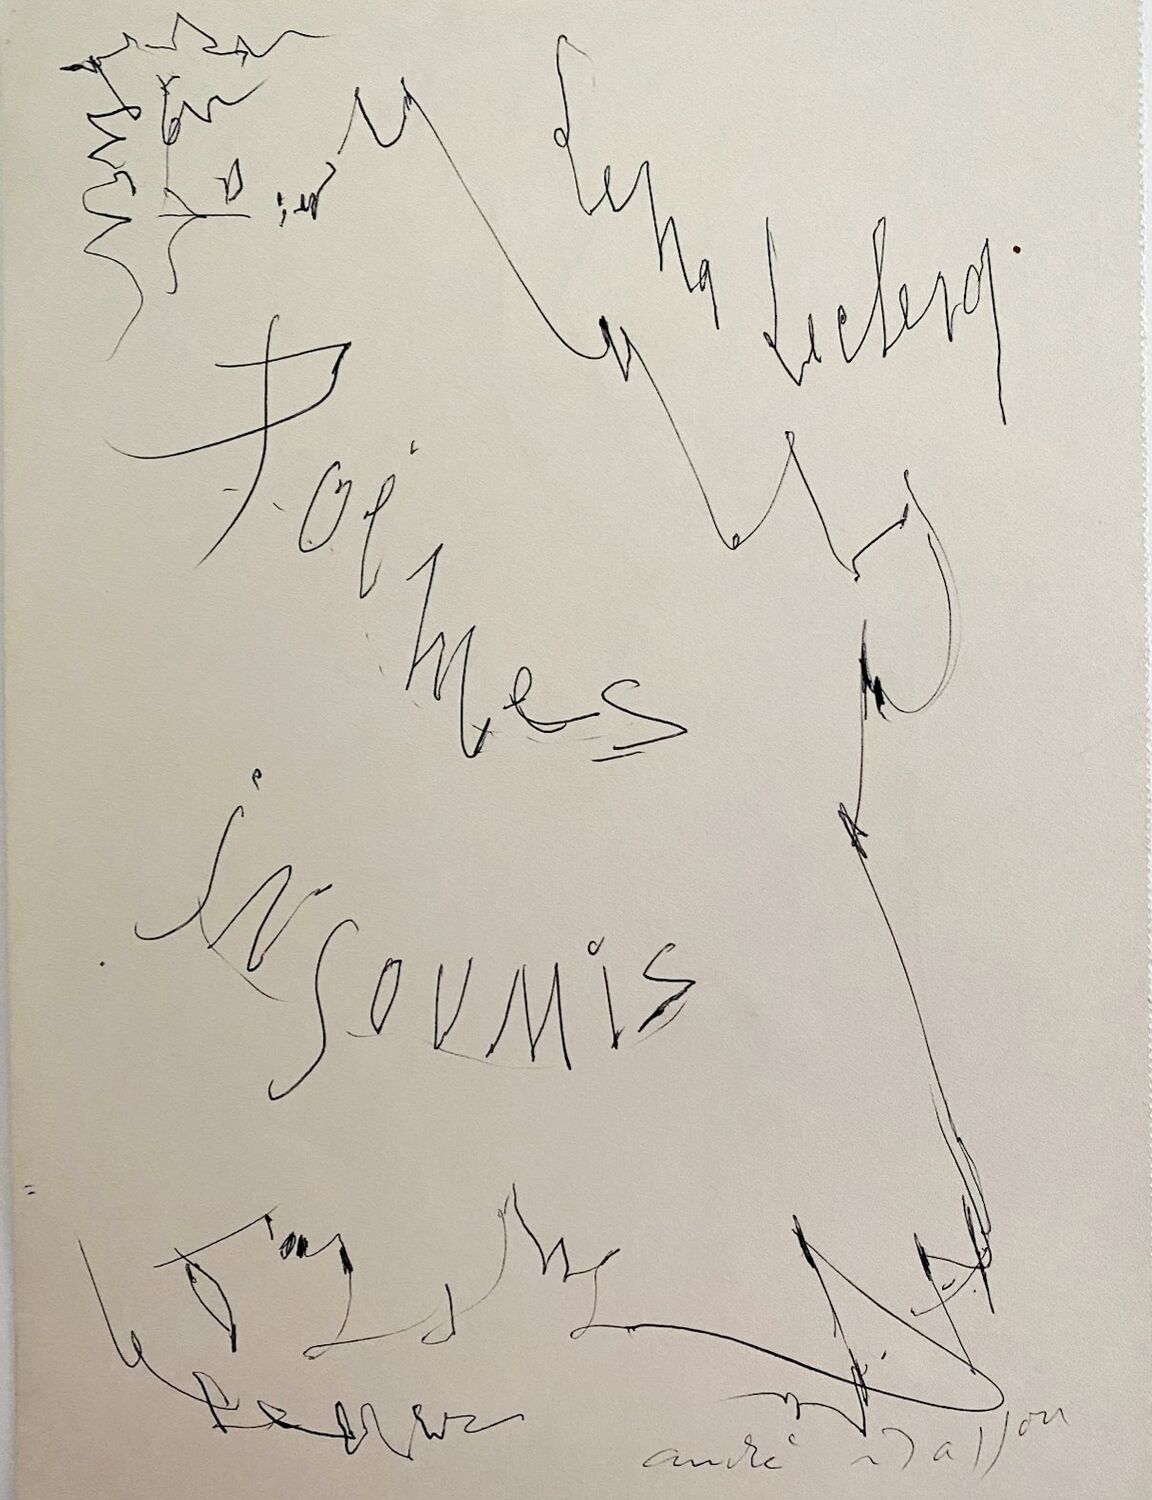 Lena
Leclercq
Poèmes
insoumis
andré Masson